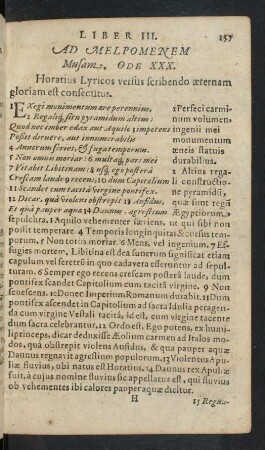 LIBER III. 157
AD MELPOMENEM
Musam. ODE XXX.
Horatius Lyricos versus scribendo æternam
gloriam est consecutus.
1 EXegi monimentum ære perennius,
2 Regaliq; situ pyramidum altius:
Quod nec imber edax aut Aquilo 3 impotens
Possit diruere, aut innumerabilis
4 Annorum series, & fuga temporum.
5 Non omnis moriar: 6 multaq; pars mei
7 Vitabit Libitinam: 8 usq; ego postera
Crescam laude 9 recens, 10 dum Capitolium
11 Scandet cum tacita virgine pontifex.
12 Dicar. qua violens obstrepit 13 Aufidus,
Et qua pauper aquæ 14 Daunus, agrestium
1 Perfeci carmi-
num volumen,
ingenii mei
monumentum
æneis statuis
durabilius.
2 Altius rega-
li constructio-
ne pyramidũ,
quæ sunt regũ
Ægyptiorum
sepulchra. 3 Aquilo vehementer sæviens, ut qui sibi non
possit temperare. 4 Temporis longinquitas & cursus tem-
porum. 5 Non totus moriar. 6 Mens, vel ingenium. 7 Ef-
fugies mortem, Libitina est dea funerum significat etiam
capulum vel feretrũ in quo cadavera efferuntur ad sepul-
turam. 8 Semper ego recens crescam posterâ laude, dum
pontifex scandet Capitolium cum tacita virgine. 9 Non
senescens. 10 Donec Imperium Romanum durabit. 11 Dum
pontifex ascendet in Capitolium ad sacra Idulia peragen-
da cum virgine Vestali tacitâ, id est, cum virgine tacente
dum sacra celebrantur. 12 Ordo est. Ego potens, ex humi-
li princeps, dicar deduxisse Æolium carmen ad Italos mo-
dos, quà obstrepit violens Aufidus, & quà pauper aquæ
Daunus regnavit agrestium populorum. 13 Violentus Apu-
liæ fluvius, ubi natus est Horatius. 14 Daunus rex Apuliæ
fuit, à cujus nomine fluvius sic appellatus est, qui fluvius
ob vehementes ibi calores pauper aquæ dicitur.
H 15 Regna-